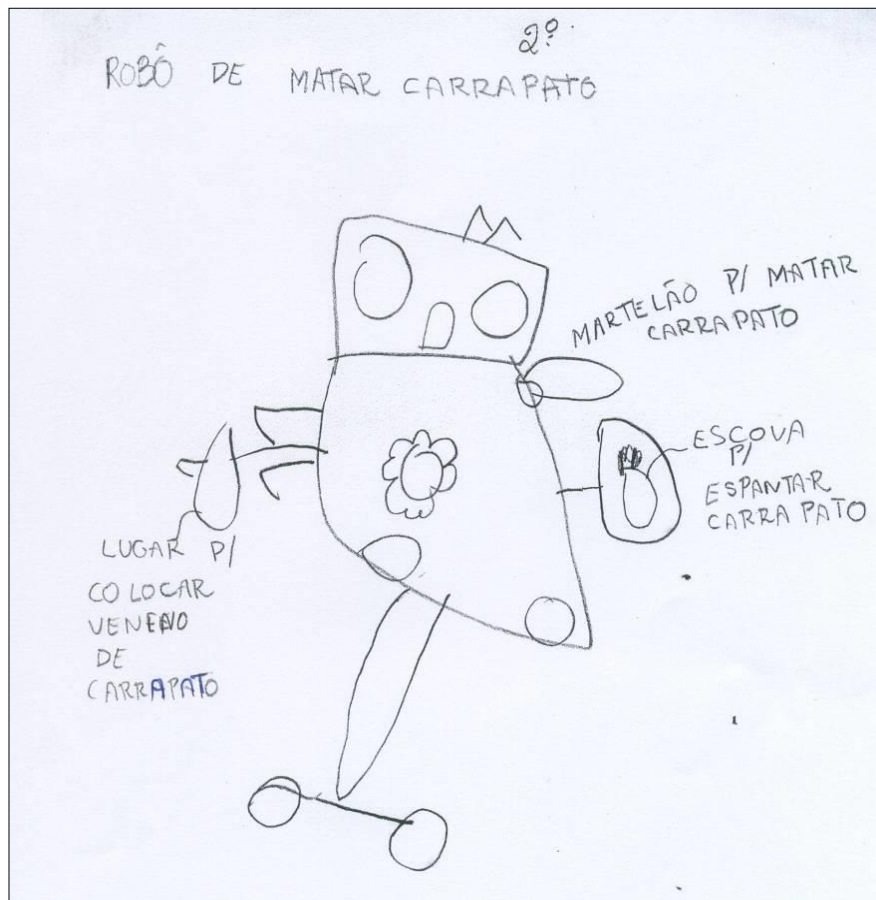 2º.
ROBÔ DE MATAR CARRAPATO
MARTELÃO P/ MATAR
CARRAPATO
ESCOVA
P/
ESPANTAR
CARRAPATO
LUGAR P/
COLOCAR
VENENO
DE
CARRAPATO